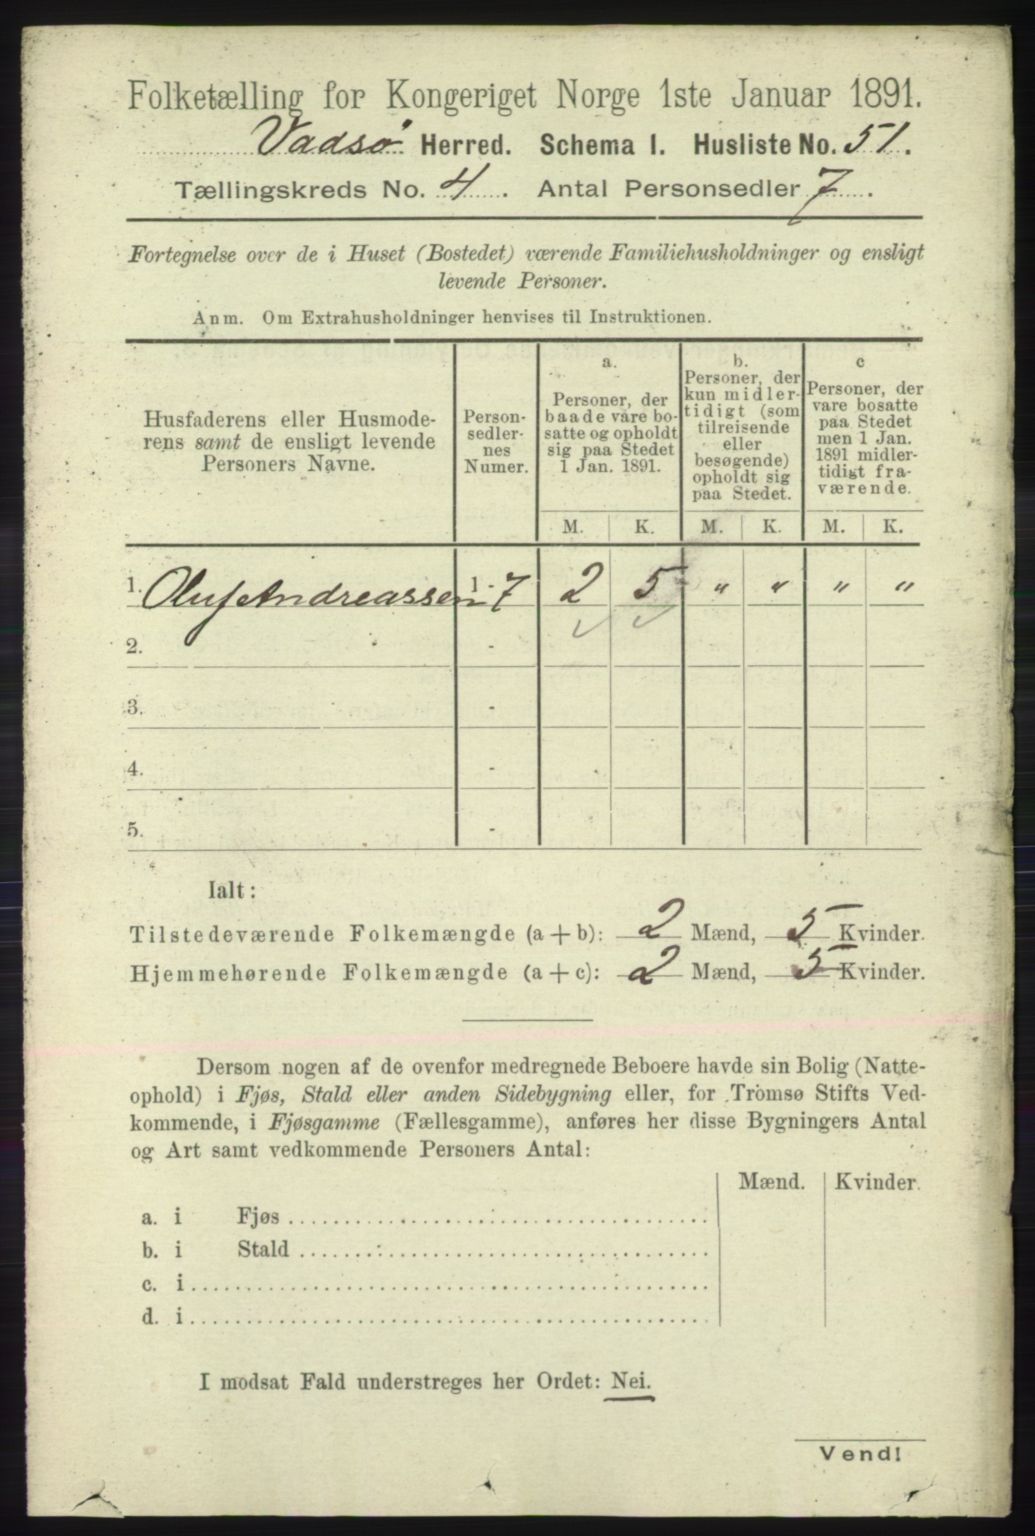 Folketælling for Kongeriget Norge 1ste Januar 1891.
Vadsø Herred. Schema I. Husliste No. 51.
Tællingskreds No. 4. Antal Personsedler 7.
Fortegnelse over de i Huset (Bostedet) værende Familiehusholdninger og ensligt
levende Personer.
Anm. Om Extrahusholdninger henvises til Instruktionen.
Husfaderens eller Husmode-
rens samt de ensligt levende
Personers Navne.
Person-
sedler-
nes
Numer.
a.
Personer, der
baade vare bo-
satte og opholdt
sig paa Stedet
1 Jan. 1891.
b.
Personer, der
kun midler-
tidigt (som
tilreisende
eller
besøgende)
opholdt sig
paa Stedet.
c
Personer, der
vare bosatte
paa Stedet
men 1 Jan.
1891 midler-
tidigt fra-
værende.
M. K. M. K. M. K.
1. Oluf Andreassen 1-7 2 5 " " " "
2. -
3. -
4. -
5. -
Ialt:
Tilstedeværende Folkemængde (a+b): 2 Mænd, 5 Kvinder.
Hjemmehørende Folkemængde (a+c): 2 Mænd, 5 Kvinder.
Dersom nogen af de ovenfor medregnede Beboere havde sin Bolig (Natte-
ophold) i Fjøs, Stald eller anden Sidebygning eller, for Tromsø Stifts Ved-
kommende, i Fjøsgamme (Fællesgamme), anføres her disse Bygningers Antal
og Art samt vedkommende Personers Antal:
Mænd. Kvinder.
a. i Fjøs
b. i Stald
c. i
d. i
I modsat Fald understreges her Ordet: Nei.
Vend!